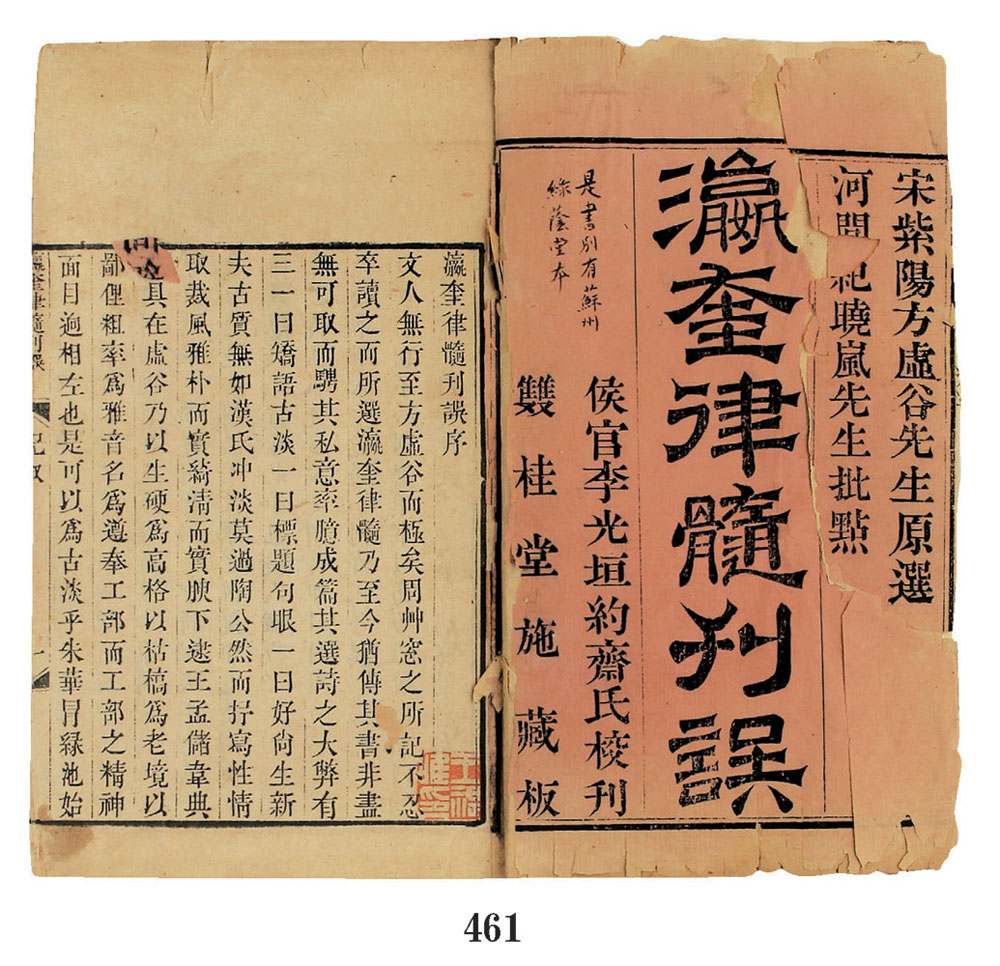 宋紫陽方虛谷先生原選
河間紀曉嵐先生批點
瀛奎律髓刋誤
侯官李光垣約齋氏校刋
雙桂堂施藏板
是書別有蘇州
綠蔭堂本
瀛奎律髓刋誤序
文人無行至方虛谷而極矣周艸窓之所記不忍
卒讀之而所選瀛奎律髓乃至今猶傳其書非盡
無可取而騁其私意率臆成篇其選詩之大弊有
三一曰矯語古淡一曰標題句眼一曰好尙生新
夫古質無如漢氏冲淡莫過陶公然而抒寫性情
取裁風雅朴而實綺淸而實腴下逮王孟儲韋典
具在虛谷乃以生硬爲高格以枯槁爲老境以
鄙俚粗率爲雅音名爲遵奉工部而工部之精神
面目逈相左也是可以爲古淡乎朱華冒綠池始
瀛奎律髓刋誤 紀敘 一
461